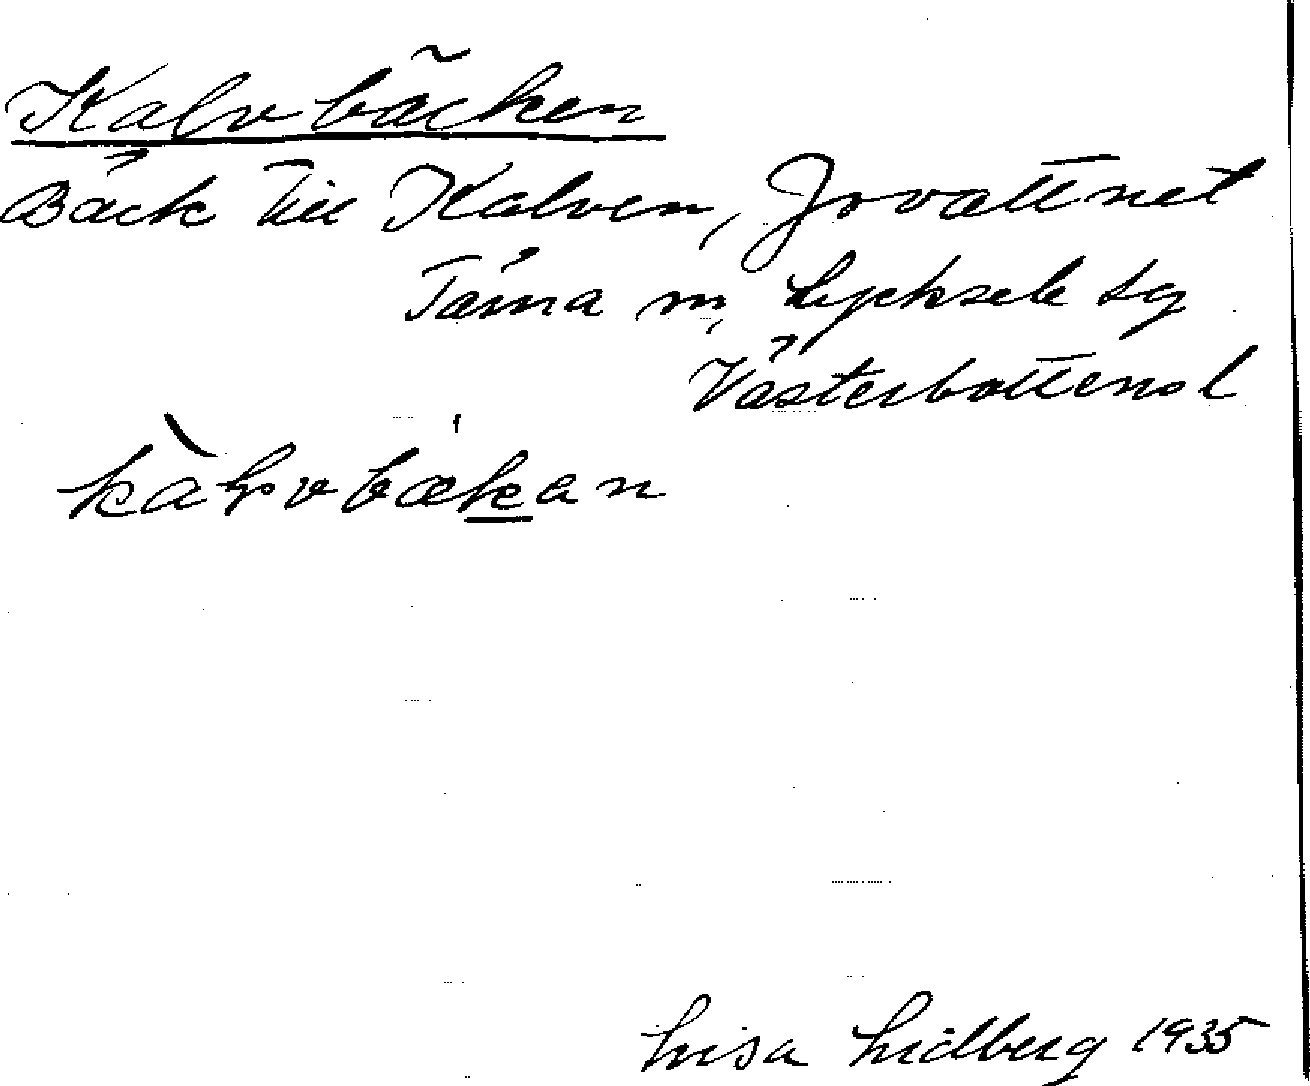 Kalvbäcken
Bäck till Kalven, Jovattnet
Tärna sn, Lycksele lg
Västerbottens l
kàlvbækan
Lisa Lidberg 1935